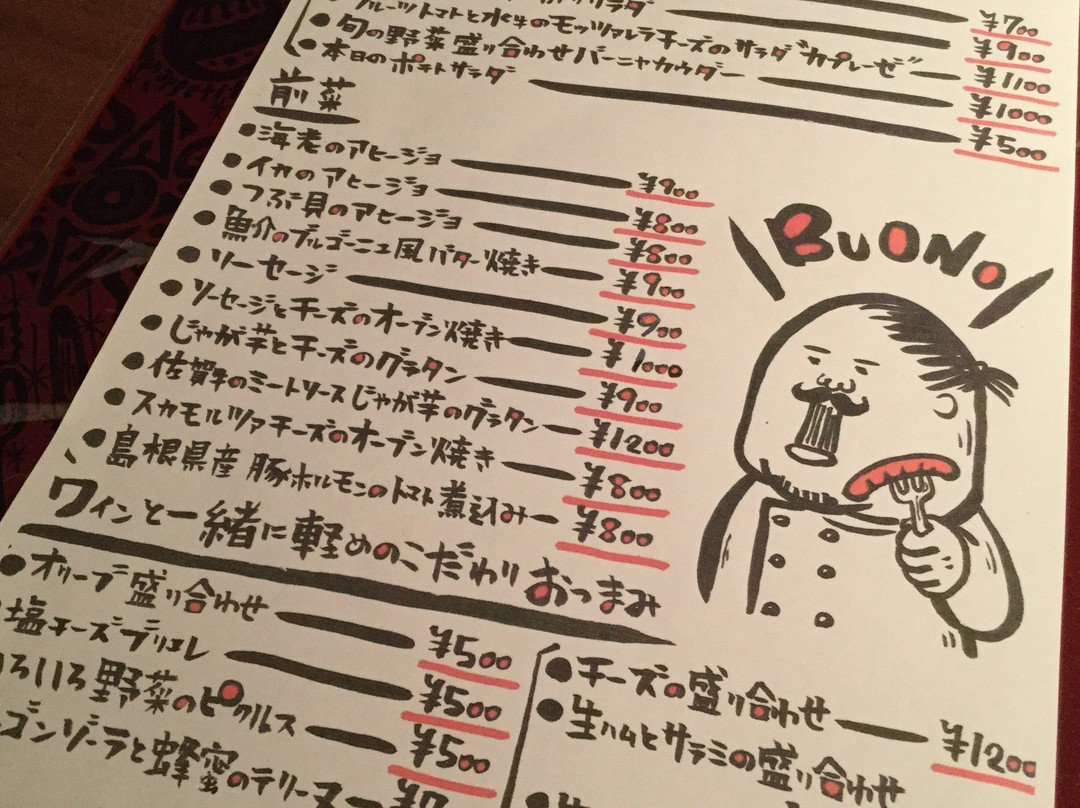 サラダ ¥700
フルーツトマトと水牛のモッツァレラチーズのサラダ"カプレーゼ" ¥900
¥1100
旬の野菜盛り合わせバーニャカウダー ¥1000
本日のポテトサラダ ¥500
前菜
海老のアヒージョ ¥900
イカのアヒージョ ¥800
つぶ貝のアヒージョ ¥800
魚介のブルゴーニュ風バター焼き ¥900
ソーセージ ¥900
ソーセージとチーズのオーブン焼き ¥1000
じゃが芋とチーズのグラタン ¥900
佐賀牛のミートソースじゃが芋のグラタン ¥1200
スカモルツァチーズのオーブン焼き ¥800
島根県産豚ホルモンのトマト煮込み ¥800
BUONO
ワインと一緒に軽めのこだわりおつまみ
オリーブ盛り合わせ ¥500
塩チーズブリエレ ¥500
いろいろ野菜のピクルス ¥500
ゴンゾーラと蜂蜜のテリーヌ
チーズの盛り合わせ ¥1200
生ハムとサラミの盛り合わせ